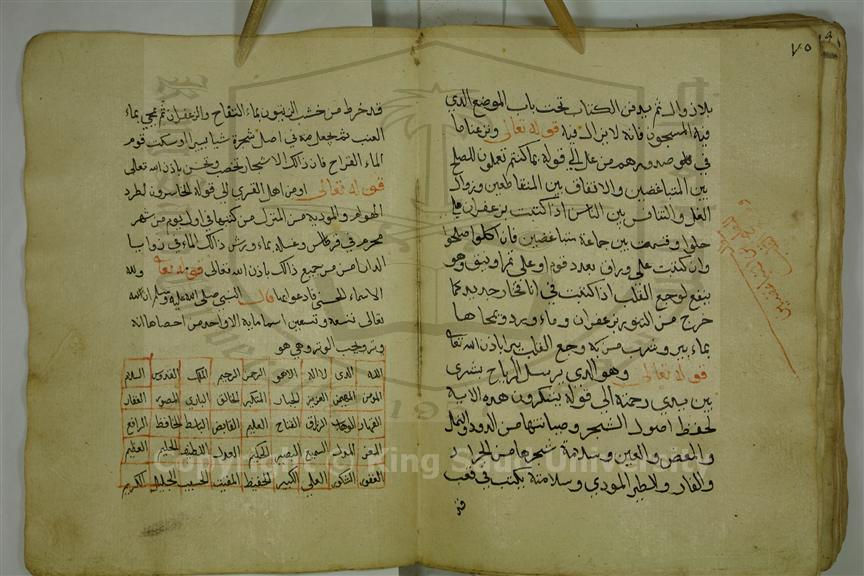 ٧٥
بلا زوال ثم يدفن الكتاب تحت باب الموضع الذي
فيه المسجون فانه لا يزال فيه قوله تعالى ونزعنا ما
في قلوبهم من غل الي قوله بما كنتم تعملون للصلح
بين المتباغضين والاتفاق بين المتقاطعين وزوال
الغل والتنافر بين الناس اذا كتبت بزعفران علي
حلوا وقسمت بين جماعة متباغضين فان اكلوا اصلحوا
وان كتبت على ورق بعدد قوم او على تمر او تين وهو
ينفع لوجع القلب اذا كتبت في انا فخار جديد كما
خرج من التنور بزعفران وماء ورد ومحاها
بماء بير وشرب منه وجع القلب يبرا باذن الله تعالى
قوله تعالى وهو الذي يرسل الرياح بشرى
بين يدي رحمته الى قوله يشكرون هذه الاية
لحفظ اصول الشجر وصيانتها من الدود والنمل
والعفن والعين وسلامة شجرها من الجراد
والفار والطير المودي وسلامته يكتب في قعب
قد خرط من خشب الزيتون بماء التفاح والزعفران ثم يمحي بماء
العنب ثم يجعل منه في اصل شجرة شيا يسيرا او سكب فوقه
الماء القراح فان ذلك الاشجار تخصب وتحسن باذن الله تعالى
قوله تعالى اومن اهل القرى الى قوله الخاسرون لطرد
الهوام والموديه من المنزل من كتبها في اول يوم من شهر
محرم في قرطاس وغسله بماء ورش ذلك الماء في زوايا
الدار امن من جميع ذلك باذن الله تعالى قوله تعالى ولله
الاسماء الحسنى فادعوه بها قال النبي صلى الله عليه وسلم ان لله
تعالى تسعه وتسعين اسما ماية الا واحد من احصاها انه
وتر ويحب الوتر وهي هو
الله الذي لا اله الا هو الرحمن الرحيم الملك القدوس السلام
المومن المهيمن العزيز الجبار المتكبر الخالق الباري المصور الغفار
القهار الوهاب الرزاق الفتاح العليم القابض الباسط الخافض الرافع
المعز المذل السميع البصير الحكم العدل اللطيف الحليم العظيم
الغفور الشكور العلي الكبير الحفيظ المقيت الحسيب الجليل الكريم
Copyright © King Saud University